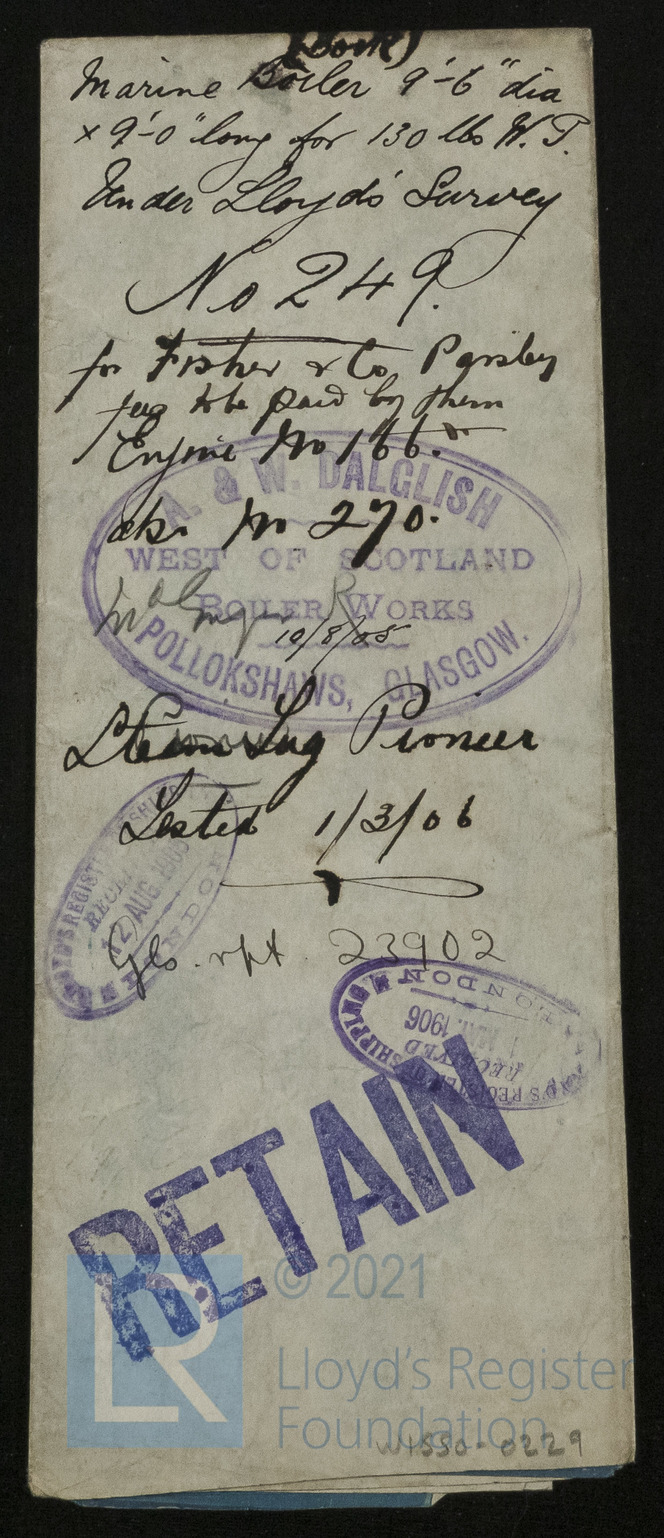 Marine Boiler 9'-6" dia
x 9'-0" long for 130 lbs W.P.
Under Lloyds' Survey
No 249.
for Fisher & Co Paisley
fees to be paid by them
Engine No 166.
No 270.
A. & W. DALGLISH
WEST OF SCOTLAND
BOILER WORKS
POLLOKSHAWS, GLASGOW.
10/8/05
Steam Tug Pioneer
Tested 1/3/06
LLOYD'S REGISTER SHIPPING
RECEIVED
12 AUG 1905
LONDON
Gls. rpt. 23902
LLOYD'S REGISTER SHIPPING
RECEIVED
1906
LONDON
RETAIN
LR
© 2021
Lloyd's Register
Foundation
W1550-0229